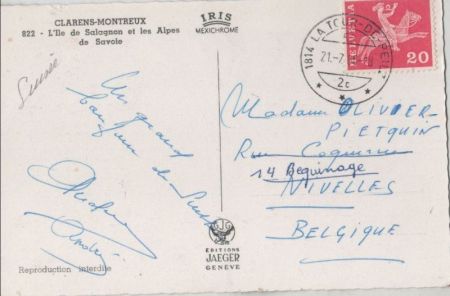 CLARENS-MONTREUX
822 - L'Ile de Salagnon et les Alpes
de Savoie
IRIS
MEXICHROME
1814 LA TOUR-DE-PEILZ
21.-7.
2c
HELVETIA
20
Suisse
Un grand
bonjour de Suisse
André
Madame OLIVIER-
PIETQUIN
Rue
14 Beguinage
NIVELLES
BELGIQUE
ÉDITIONS
JAEGER
GENÈVE
Reproduction interdite